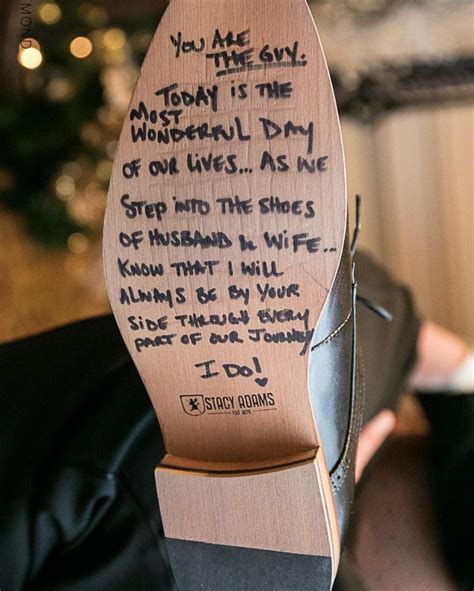 MOND
YOU ARE
THE GUY.
TODAY IS THE
MOST
WONDERFUL DAY
OF OUR LIVES... AS WE
STEP INTO THE SHOES
OF HUSBAND & WIFE...
KNOW THAT I WILL
ALWAYS BE BY YOUR
SIDE THROUGH EVERY
PART OF OUR JOURNEY
I DO!
STACY ADAMS
EST 1875